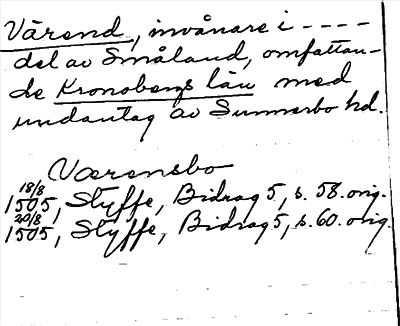 Värend, invånare i ----
del av Småland, omfattan-
de Kronobergs län med
undantag av Sunnerbo hd.
Værensbo
18/8
1505, Styffe, Bidrag 5, s. 58. orig.
20/8
1505, Styffe, Bidrag 5, s. 60. orig.